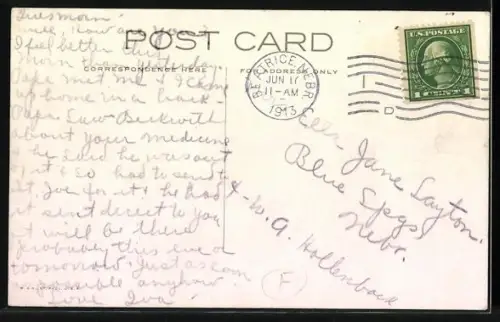 Tues morn.
Well, how are you?
I feel better this
morn than yesterday.
Papa met me & I came
up home in a hack
Papa saw Beckwith
about your medicine
& he said he was out
of it & so had to send to
St. Joe for it & he had
it sent direct to you
it will be there
probably this eve or
tomorrow. Just as soon
as possible anyhow.
Love Iva
POST CARD
CORRESPONDENCE HERE
FOR ADDRESS ONLY
BEATRICE, NEBR.
JUN 17
11-AM
1913
D
U.S. POSTAGE
1 1
Ella Jane Layton
Blue Spgs,
Nebr.
% W. A. Hollenback
F